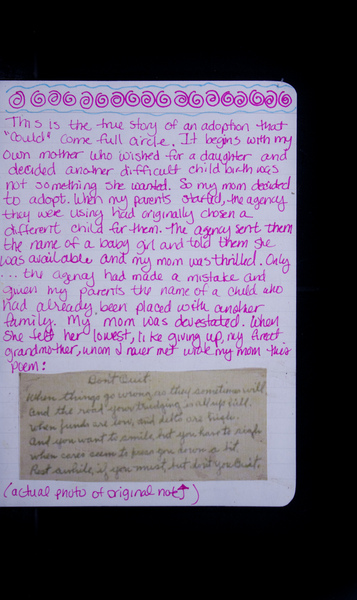 This is the true story of an adoption that
"could" come full circle. It begins with my
own mother who wished for a daughter and
decided another difficult child birth was
not something she wanted. So my mom decided
to adopt. When my parents started, the agency
they were using had originally chosen a
different child for them. The agency sent them
the name of a baby girl and told them she
was available and my mom was thrilled. Only
... the agency had made a mistake and
given my parents the name of a child who
had already been placed with another
family. My mom was devestated. When
she felt her lowest, like giving up, my great
grandmother, whom I never met wrote my mom this
poem:
Don't Quit.
When things go wrong as they sometimes will
And the road your trudging is all up hill.
When funds are low, and debts are high.
And you want to smile but you have to sigh
when cares seem to press you down a bit.
Rest awhile, if you must, but don't you Quit.
(actual photo of original note↑)